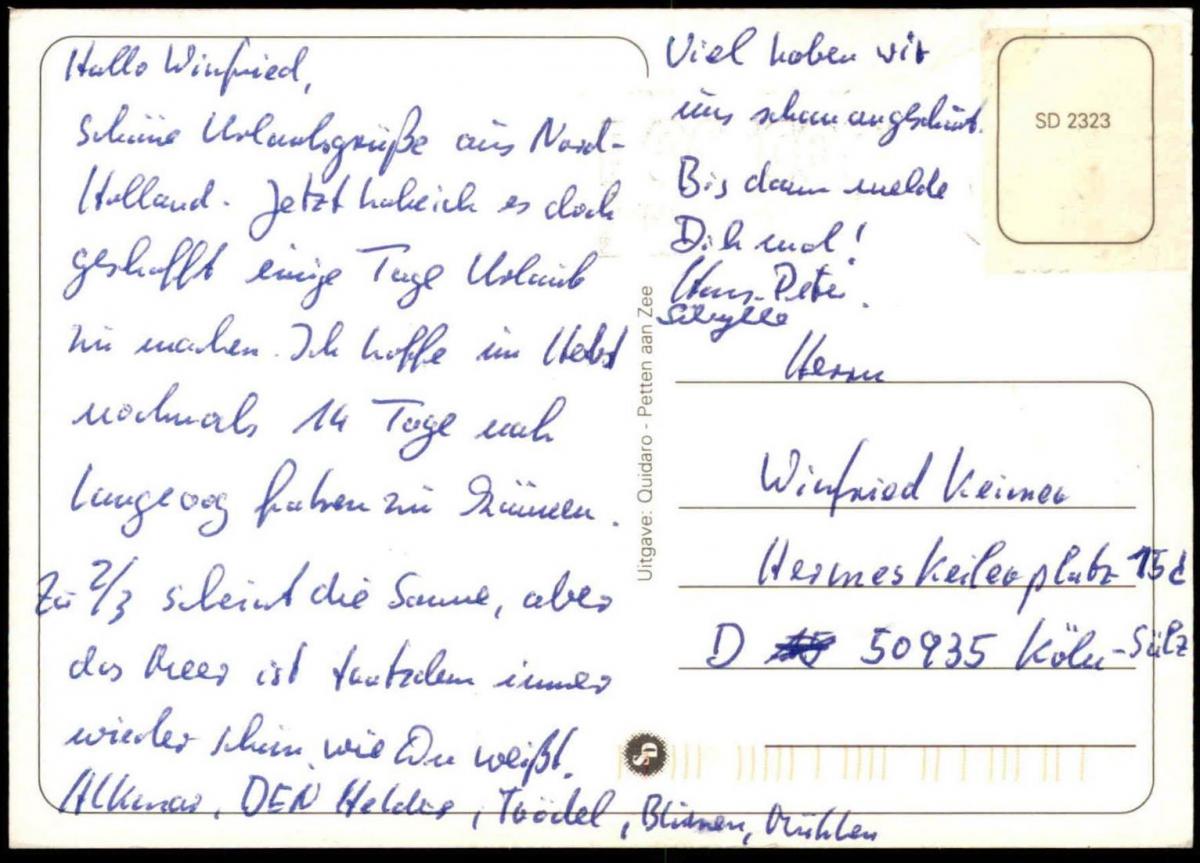 Hallo Winfried,
schöne Urlaubsgrüße aus Nord-
Holland. Jetzt habe ich es doch
geschafft einige Tage Urlaub
zu machen. Ich hoffe im Herbst
nochmals 14 Tage nach
Langeoog fahren zu können.
Zu 2/3 scheint die Sonne, aber
das Meer ist trotzdem immer
wieder schön, wie Du weißt.
Alkmar, DEN Helder, Trödel, Blumen, Mühlen
Viel haben wir
uns schon angeschaut.
Bis dann melde
Dich mal!
Hans-Peter.
Sibylle
SD 2323
Uitgave: Quidaro - Petten aan Zee
Herrn
Winfried Keimer
Hermeskeilerplatz 15d
D 50935 Köln-Sülz
SD